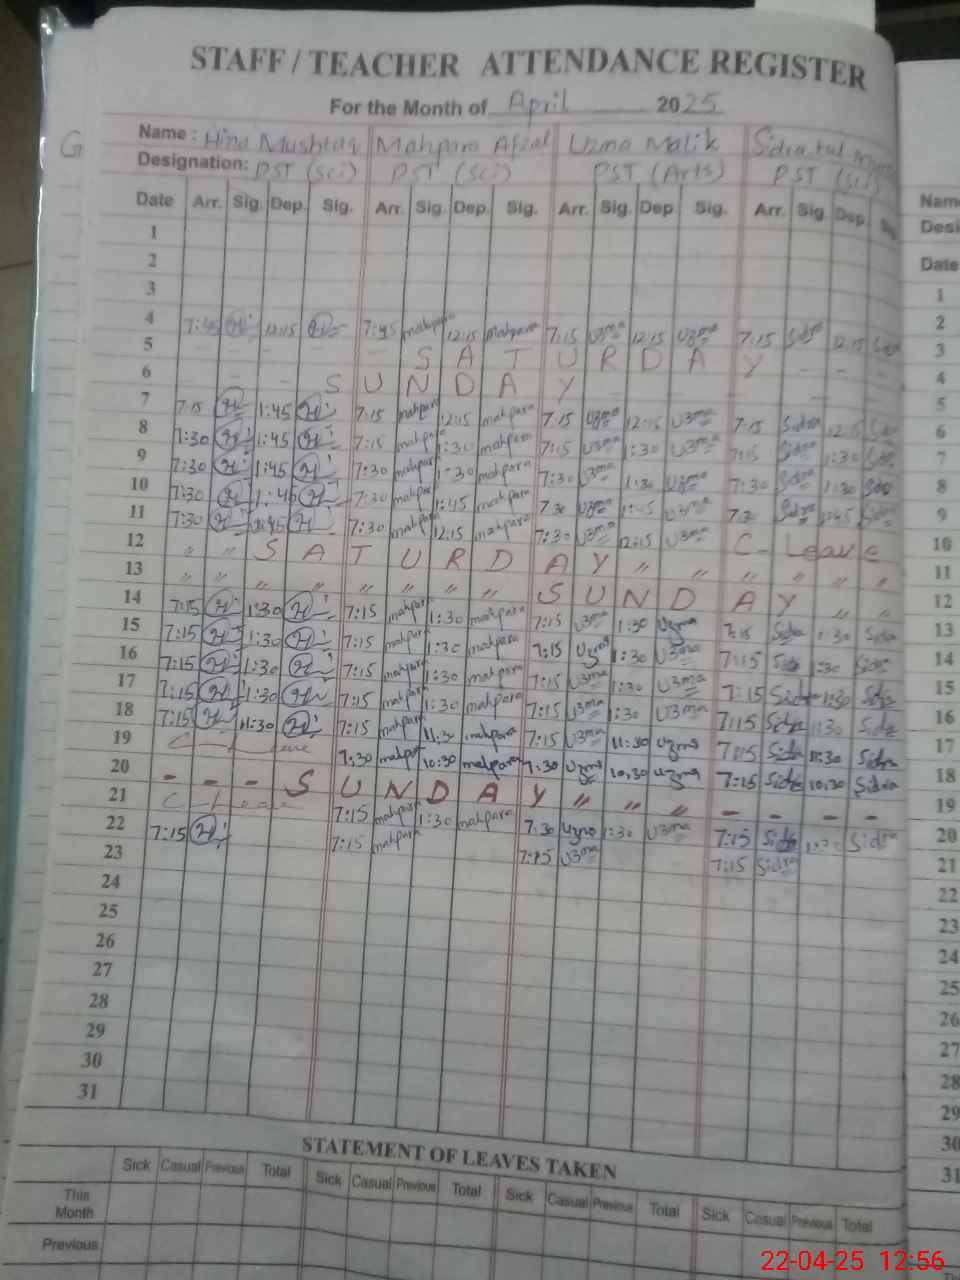 STAFF / TEACHER ATTENDANCE REGISTER
For the Month of April 2025
Name : Hina Mushtaq Mahpara Afzal Uzma Malik
Designation: PST (Sci) PST (Sci) PST (Arts) PST (Sci)
Date Arr. Sig. Dep. Sig. Arr. Sig. Dep. Sig. Arr. Sig. Dep. Sig. Arr. Sig. Dep. Sig
1
2
3
4 7:45 H 12:15 H 7:45 mahpara 12:15 mahpara 7:15 Uzma 12:15 Uzma 7:15 Sidra 12:15
5 S A T U R D A Y
6 S U N D A Y
7 7:15 H 1:45 H 7:15 mahpara 12:15 mahpara 7:15 Uzma 12:15 Uzma 7:15 Sidra 12:15
8 1:30 H 1:45 H 7:15 mahpara 1:30 mahpara 7:15 Uzma 1:30 Uzma 7:15 Sidra 1:30 Sidra
9 7:30 H 1:45 H 7:30 mahpara 1:30 mahpara 7:30 Uzma 1:30 Uzma 7:30 Sidra 1:30 Sidra
10 7:30 H 1:45 H 7:30 mahpara 1:45 mahpara 7:30 Uzma 1:45 Uzma 7:30 Sidra 1:45 Sidra
11 7:30 H H 7:30 mahpara 12:15 mahpara 7:30 Uzma 12:15 Uzma C- Leave
12 " " S A T U R D A Y " " " " " "
13 " " " " " " " " S U N D A Y " "
14 7:15 H 1:30 H 7:15 mahpara 1:30 mahpara 7:15 Uzma 1:30 Uzma 7:15 Sidra 1:30 Sidra
15 7:15 H 1:30 H 7:15 mahpara 1:30 mahpara 7:15 Uzma 1:30 Uzma 7:15 Sidra 1:30 Sidra
16 7:15 H 1:30 H 7:15 mahpara 1:30 mahpara 7:15 Uzma 1:30 Uzma 7:15 Sidra 1:30 Sidra
17 7:15 H 1:30 H 7:15 mahpara 1:30 mahpara 7:15 Uzma 1:30 Uzma 7:15 Sidra 1:30 Sidra
18 7:15 H 11:30 H 7:15 mahpara 11:30 mahpara 7:15 Uzma 11:30 Uzma 7:15 Sidra 11:30 Sidra
19 C-Leave 7:30 mahpara 10:30 mahpara 7:30 Uzma 10:30 Uzma 7:15 Sidra 10:30 Sidra
20 - - - S U N D A Y " " " - - - -
21 C-Leave 7:15 mahpara 1:30 mahpara 7:30 Uzma 1:30 Uzma 7:15 Sidra 1:30 Sidra
22 7:15 H 7:15 mahpara 7:15 Uzma 7:15 Sidra
23
24
25
26
27
28
29
30
31
STATEMENT OF LEAVES TAKEN
Sick Casual Previous Total Sick Casual Previous Total Sick Casual Previous Total Sick Casual Previous Total
This Month
Previous
Date
1
2
3
4
5
6
7
8
9
10
11
12
13
14
15
16
17
18
19
20
21
22
23
24
25
26
27
28
29
30
31
22-04-25 12:56